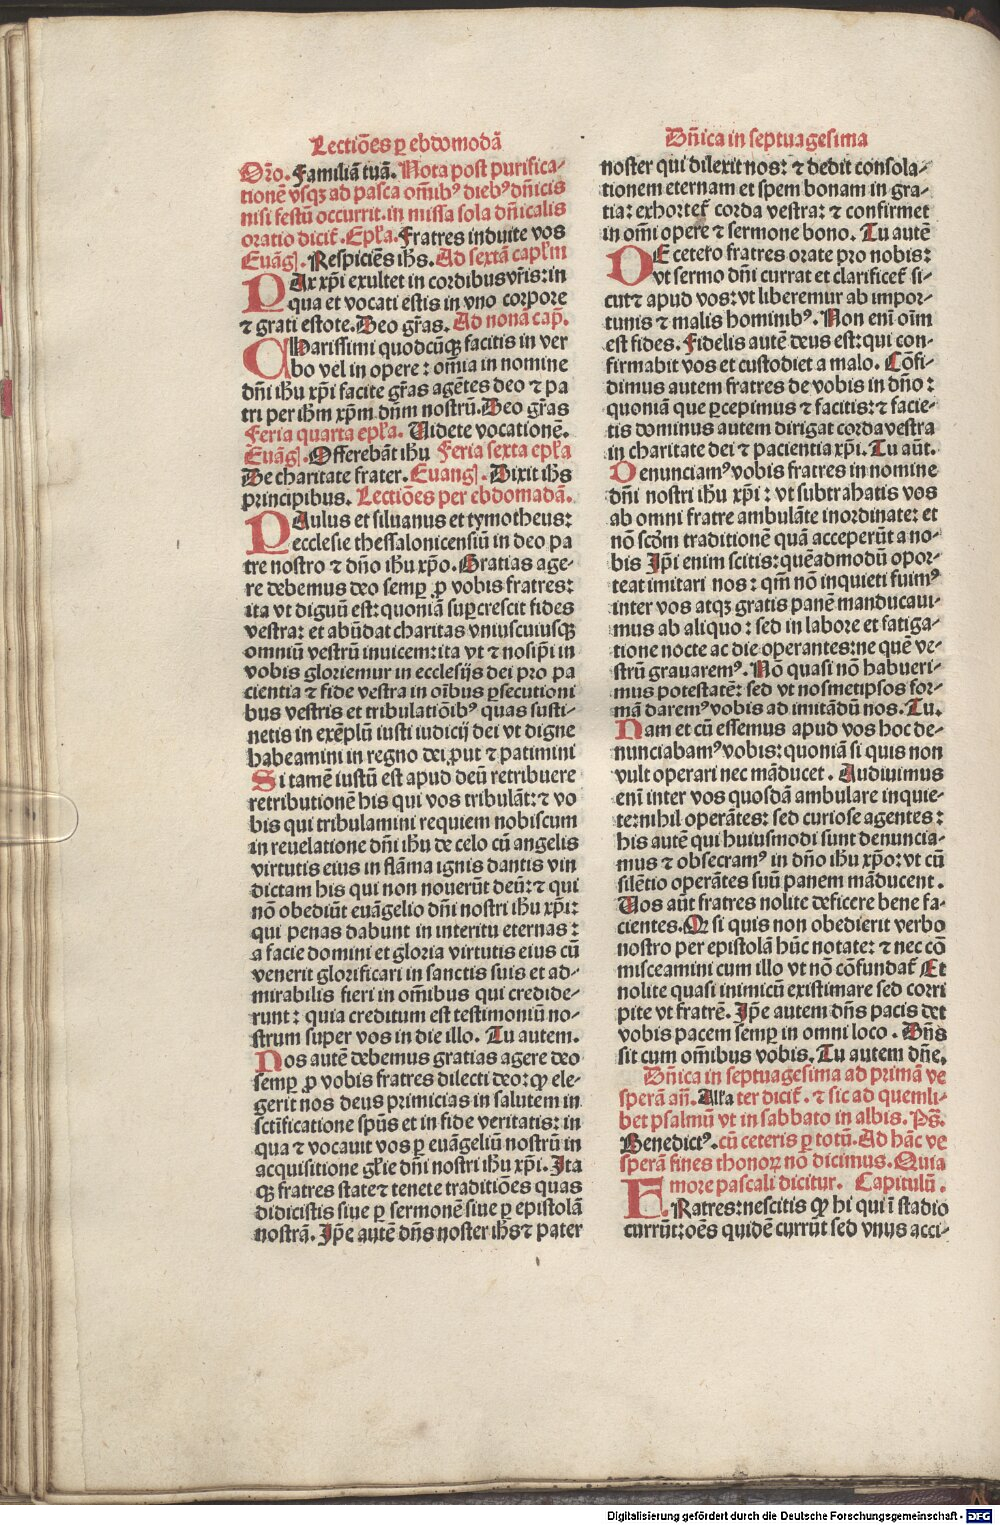 Lectiões ꝑ ebdomodã
Oro. Familiã tuã. Nota post purifica-
tionẽ vsqꝫ ad pasca om̃ibꝰ diebꝰ dñicis
nisi festũ occurrit. in missa sola dñicalis
oratio dicit᷑. Epl̃a. Fratres induite vos
Euãgl̃. Respiciẽs ihs. Ad sextã capl̃m
PAx xp̃i exultet in cordibus vr̃is: in
qua et vocati estis in vno corpore
⁊ grati estote. Deo gr̃as. Ad nonã cap̃.
CHarissimi quodcũqꝫ facitis in ver
bo vel in opere: om̃ia in nomine
dñi ihu xp̃i facite gr̃as agẽtes deo ⁊ pa
tri per ihm xp̃m dñm nostrũ. Deo gr̃as
Feria quarta epl̃a. Uidete vocationẽ.
Euãgl̃. Offerebãt ihu Feria sexta epl̃a
De charitate frater. Euangl̃. Dixit ihs
principibus. Lectiões per ebdomadã.
PAulus et siluanus et tymotheus:
ecclesie thessalonicensiũ in deo pa
tre nostro ⁊ dño ihu xp̃o. Gratias age-
re debemus deo semꝑ ꝓ vobis fratres:
ita vt dignũ est: quoniã suꝑcrescit fides
vestra: et abũdat charitas vniuscuiusqꝫ
omniũ vestrũ inuicem: ita vt ⁊ nosip̃i in
vobis gloriemur in ecclesijs dei pro pa
cientia ⁊ fide vestra in oĩbus ꝑsecutioni
bus vestris et tribulatiõibꝰ quas susti-
netis in exẽplũ iusti iudicij dei vt digne
habeamini in regno dei ꝓut ⁊ patimini
Si tamẽ iustũ est apud deũ retribuere
retributionẽ his qui vos tribulãt: ⁊ vo
bis qui tribulamini requiem nobiscum
in reuelatione dñi ihu de celo cũ angelis
virtutis eius in flãma ignis dantis vin
dictam his qui non nouerũt deũ: ⁊ qui
nõ obediũt euãgelio dñi nostri ihu xp̃i:
qui penas dabunt in interitu eternas:
a facie domini et gloria virtutis eius cũ
venerit glorificari in sanctis suis et ad-
mirabilis fieri in om̃ibus qui credide-
runt: quia creditum est testimoniũ no-
strum super vos in die illo. Tu autem.
Nos autẽ debemus gratias agere deo
semꝑ ꝓ vobis fratres dilecti deo: qꝫ ele-
gerit nos deus primicias in salutem in
sctificatione spũs et in fide veritatis: in
qua ⁊ vocauit vos ꝑ euãgeliũ nostrũ in
acquisitione gl̃ie dñi nostri ihu xp̃i. Ita
qꝫ fratres state ⁊ tenete traditiões quas
didicistis siue ꝑ sermonẽ siue ꝑ epistolã
nostrã. Ip̃e autẽ dñs noster ihs ⁊ pater
Dñica in septuagesima
noster qui dilexit nos: ⁊ dedit consola-
tionem eternam et spem bonam in gra-
tia: exhortet᷑ corda vestra: ⁊ confirmet
in om̃i opere ⁊ sermone bono. Tu autẽ
DE cetero fratres orate pro nobis:
vt sermo dñi currat et clarificet᷑ si-
cut ⁊ apud vos: vt liberemur ab impor-
tunis ⁊ malis hominibꝰ. Non eni oĩm
est fides. Fidelis autẽ deus est: qui con-
firmabit vos et custodiet a malo. Cõfi-
dimus autem fratres de vobis in dño:
quoniã que ꝑcepimus ⁊ facitis: ⁊ facie-
tis dominus autem dirigat corda vestra
in charitate dei ⁊ pacientia xp̃i. Tu aũt.
Denunciamꝰ vobis fratres in nomine
dñi nostri ihu xp̃i: vt subtrahatis vos
ab omni fratre ambulãte inordinate: et
nõ scdm̃ traditionẽ quã acceperũt a no-
bis Ip̃i enim scitis: quẽadmodũ opor-
teat imitari nos: qm̃ nõ inquieti fuimꝰ
inter vos atqꝫ gratis panẽ manducaui-
mus ab aliquo: sed in labore et fatiga-
tione nocte ac die operantes: ne quẽ ve-
strũ grauaremꝰ. Nõ quasi nõ habueri-
mus potestatẽ: sed vt nosmetipsos for-
mã daremꝰ vobis ad imitãdũ nos. Tu.
Nam et cũ essemus apud vos hoc de-
nunciabamꝰ vobis: quoniã si quis non
vult operari nec mãducet. Audiuimus
enĩ inter vos quosdã ambulare inquie-
te: nihil operãtes: sed curiose agentes:
his autẽ qui huiusmodi sunt denuncia-
mus ⁊ obsecramꝰ in dño ihu xp̃o: vt cũ
silẽtio operãtes suũ panem mãducent.
Uos aũt fratres nolite deficere bene fa-
cientes. Qꝫ si quis non obedierit verbo
nostro per epistolã hũc notate: ⁊ nec cõ
misceamini cum illo vt nõ cõfundat᷑ Et
nolite quasi inimicũ existimare sed corri
pite vt fratrẽ. Ip̃e autem dñs pacis det
vobis pacem semꝑ in omni loco. Dñs
sit cum om̃ibus vobis. Tu autem dñe.
Dñica in septuagesima ad primã ve
sperã añ. All̃a ter dicit᷑. ⁊ sic ad quemli-
bet psalmũ vt in sabbato in albis. Ps̃.
Benedictꝰ. cũ ceteris ꝑ totũ. Ad hãc ve
sperã fines thonoꝝ nõ dicimus. Quia
more pascali dicitur. Capitulũ.
FRatres: nescitis qꝫ hi qui ĩ stadio
currũt: oẽs quidẽ currũt sed vnus acci-
Digitalisierung gefördert durch die Deutsche Forschungsgemeinschaft - DFG